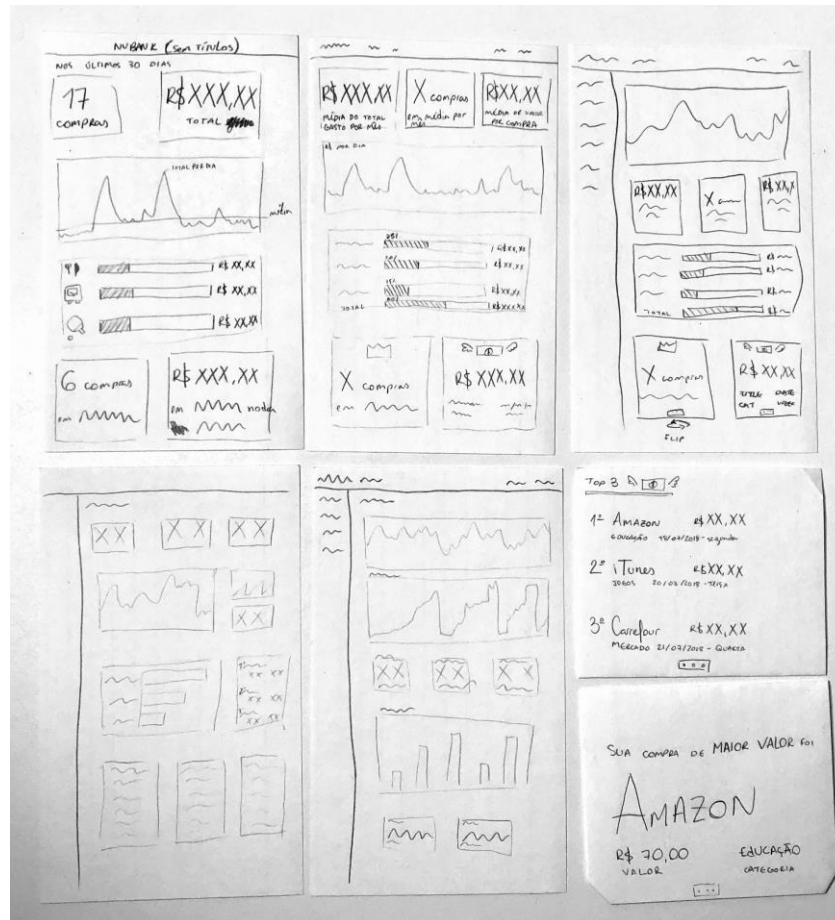 NUBANK (SEM TÍTULOS)
NOS ÚLTIMOS 30 DIAS
17
COMPRAS
R$XXX,XX
TOTAL
TOTAL POR DIA
média
R$ XX,XX
R$ XX,XX
R$ XX,XX
6 compras
em
R$ XXX,XX
em
R$XXX,XX
MÉDIA DO TOTAL
GASTO POR MÊS
X compras
em média por
mês
R$XX,XX
MÉDIA DE VALOR
POR COMPRA
R$ POR DIA
R$XX,XX
R$XX,XX
R$XX,XX
TOTAL
R$XXX,XX
X compras
em
R$XXX,XX
R$XX,XX
X
R$XX,X
R$
R$
R$
TOTAL
R$
X compras
FLIP
R$ XXX,XX
TÍTULO DATA
CAT
XX
XX
XX
XX
XX XX
XX XX
XX XX
XX
XX
XX
TOP 3
1º AMAZON R$XX,XX
EDUCAÇÃO 19/07/2018 - segunda
2º iTunes R$XX,XX
JOGOS 20/07/2018 - TERÇA
3º Carrefour R$XX,XX
MERCADO 21/07/2018 - QUARTA
SUA COMPRA DE MAIOR VALOR FOI
AMAZON
R$ 70,00 EDUCAÇÃO
VALOR CATEGORIA